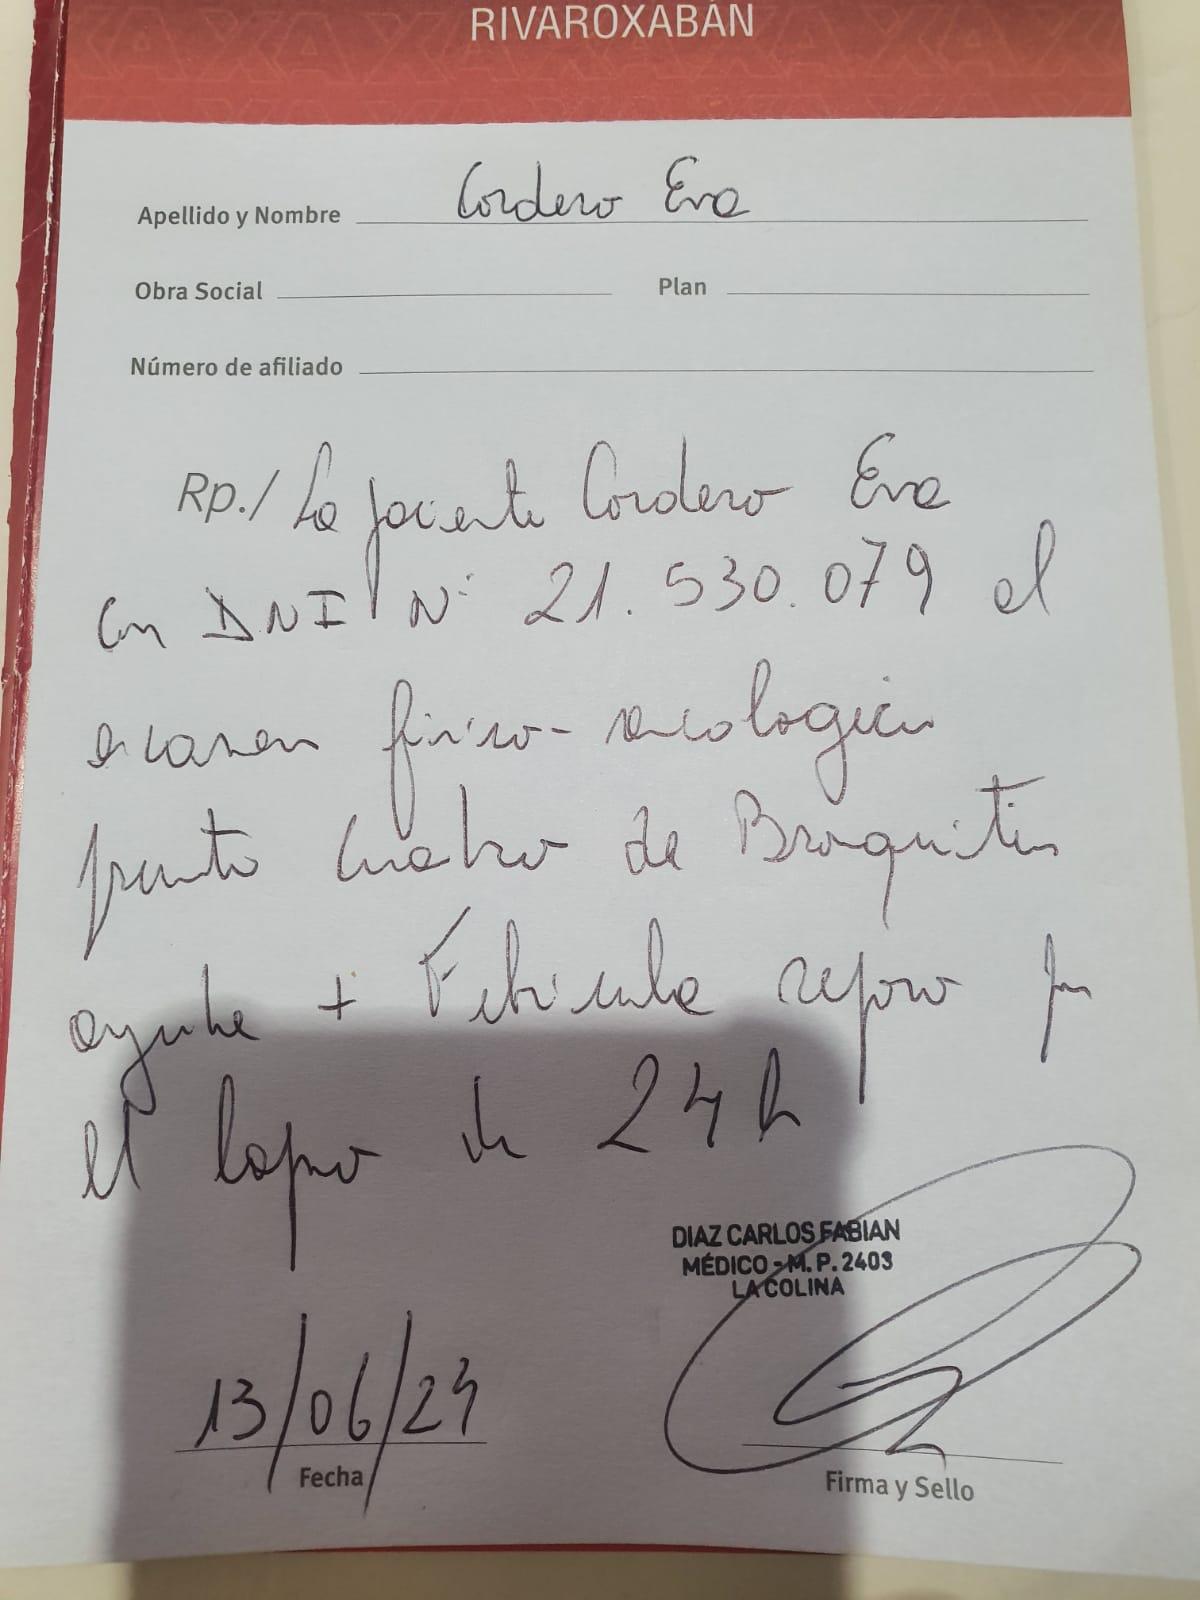 RIVAROXABÁN
Apellido y Nombre Cordero Eva
Obra Social Plan
Número de afiliado
Rp./ La paciente Cordero Eva
con DNI N° 21.530.079 al
examen físico-
cuadro de Bronquitis
aguda + Febrícula reposo por
el lapso de 24 h
DIAZ CARLOS FABIAN
MÉDICO - M. P. 2403
LA COLINA
13/06/24
Fecha
Firma y Sello